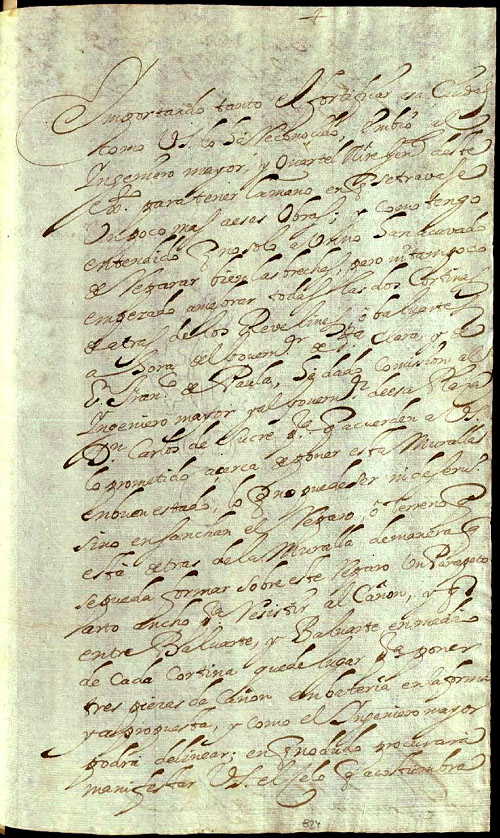 4
Importando tanto el fortificar esa Ciudad
como VS. lo ha Reconocido, embio al
Ingeniero mayor, y Quartel Mre Gen.l de este
ex.to para tener la mano en q se travaje
un poco mas a esas obras; y como tengo
entendido q no solo a Unno han acavado
de Reparar bien las brechas, pero ni tampoco
empezado a menbrar todas las dos Cortinas
de atras de los Revellines, o baluartes
a hora del Govern.r de S.ta Clara, y de
S. Fran.co de Paula, he dado Comision al
Ingeniero mayor y al Govern.r de esa Plaza
Dn Carlos de Sucre p.a q acuerden a VS.
lo prometido acerca de poner esta Muralla
en buen estado, lo q no puede ser ni de serv.o
sino ensanchan el Reparo, o terreno q
está detras de la Muralla de manera q
se pueda formar sobre este Reparo Un Parapeto
arto ancho p.a Resistir al Cañon, y q
entre Baluarte, y Baluarte en medio
de Cada Cortina quede lugar p.a poner
tres piezas de Cañon en bateria en la forma
ya propuesta, y como el Ingeniero mayor
podrá delinear; en q no dudo procurará
manifestar VS. el Zelo q acostumbra
824